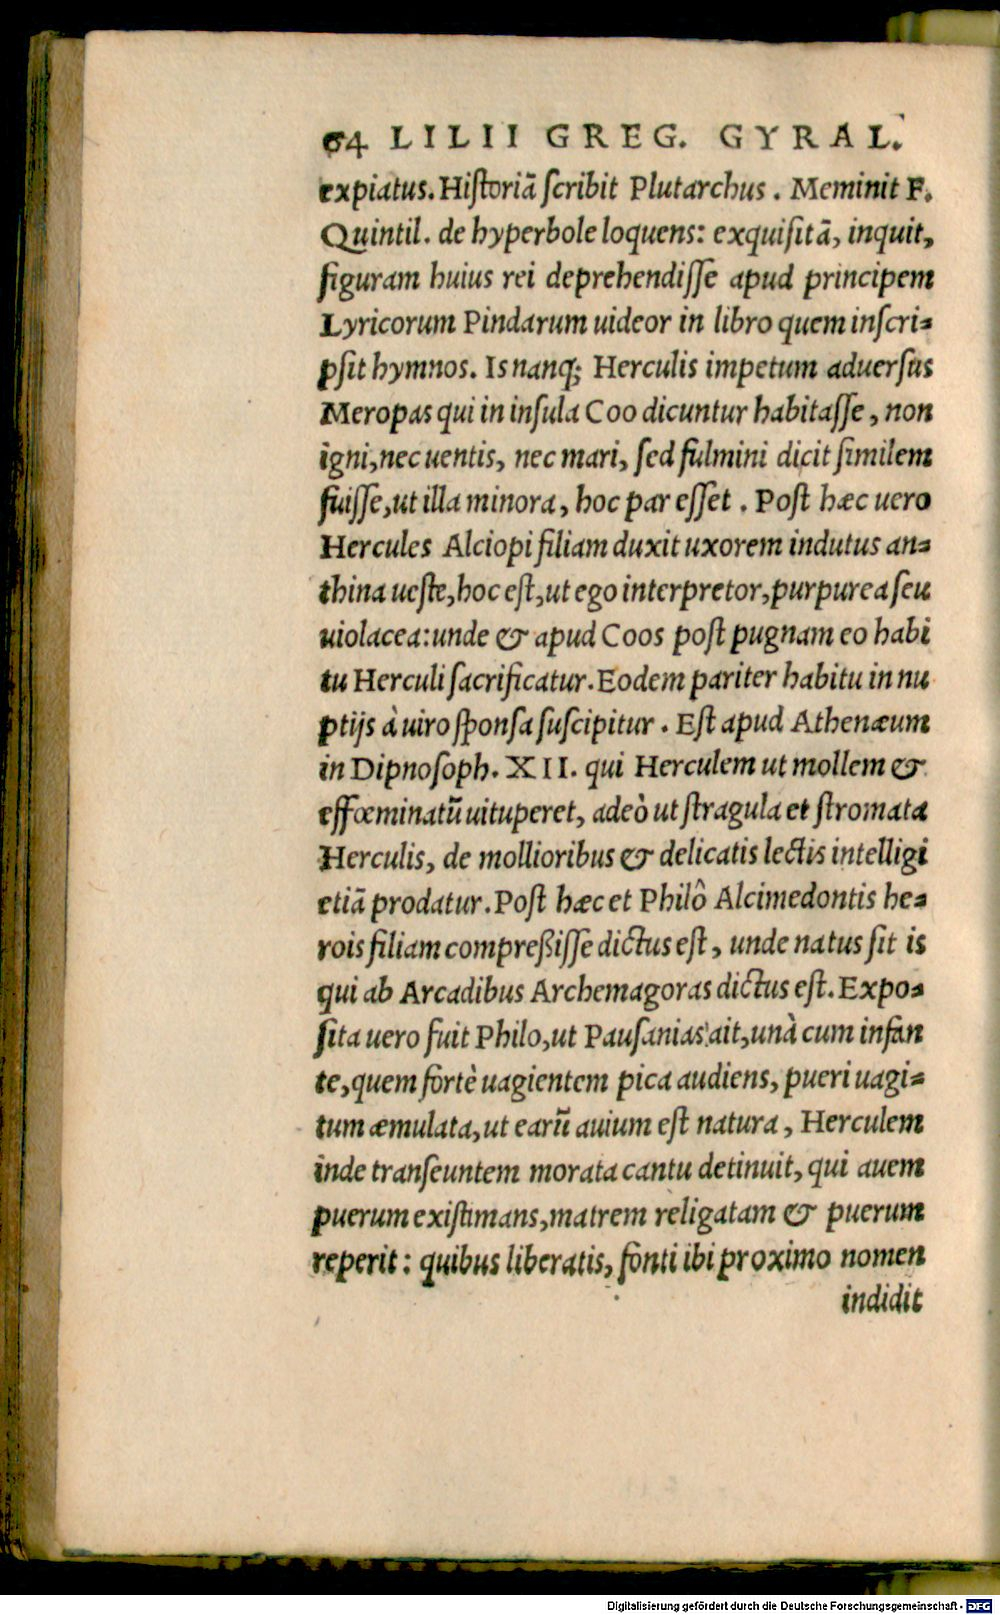 64 LILII GREG. GYRAL.
expiatus. Historiã ſcribit Plutarchus. Meminit F.
Quintil. de hyperbole loquens: exquiſitã, inquit,
figuram huius rei deprehendiſſe apud principem
Lyricorum Pindarum uideor in libro quem inſcri-
pſit hymnos. Is nanq; Herculis impetum aduerſus
Meropas qui in inſula Coo dicuntur habitaſſe, non
igni, nec uentis, nec mari, ſed fulmini dicit ſimilem
fuiſſe, ut illa minora, hoc par eſſet. Poſt hæc uero
Hercules Alciopi filiam duxit uxorem indutus an-
thina ueſte, hoc eſt, ut ego interpretor, purpurea ſeu
uiolacea: unde & apud Coos poſt pugnam eo habi
tu Herculi ſacrificatur. Eodem pariter habitu in nu
ptijs à uiro ſponſa ſuſcipitur. Eſt apud Athenæum
in Dipnoſoph. XII. qui Herculem ut mollem &
effœminatũ uituperet, adeò ut ſtragula et ſtromata
Herculis, de mollioribus & delicatis lectis intelligi
etiã prodatur. Poſt hæc et Philô Alcimedontis he-
rois filiam compreßiſſe dictus eſt, unde natus ſit is
qui ab Arcadibus Archemagoras dictus eſt. Expo-
ſita uero fuit Philo, ut Pauſanias ait, unà cum infan
te, quem fortè uagientem pica audiens, pueri uagi-
tum æmulata, ut earũ auium eſt natura, Herculem
inde tranſeuntem morata cantu detinuit, qui auem
puerum exiſtimans, matrem religatam & puerum
reperit: quibus liberatis, fonti ibi proximo nomen
indidit
Digitalisierung gefördert durch die Deutsche Forschungsgemeinschaft - DFG